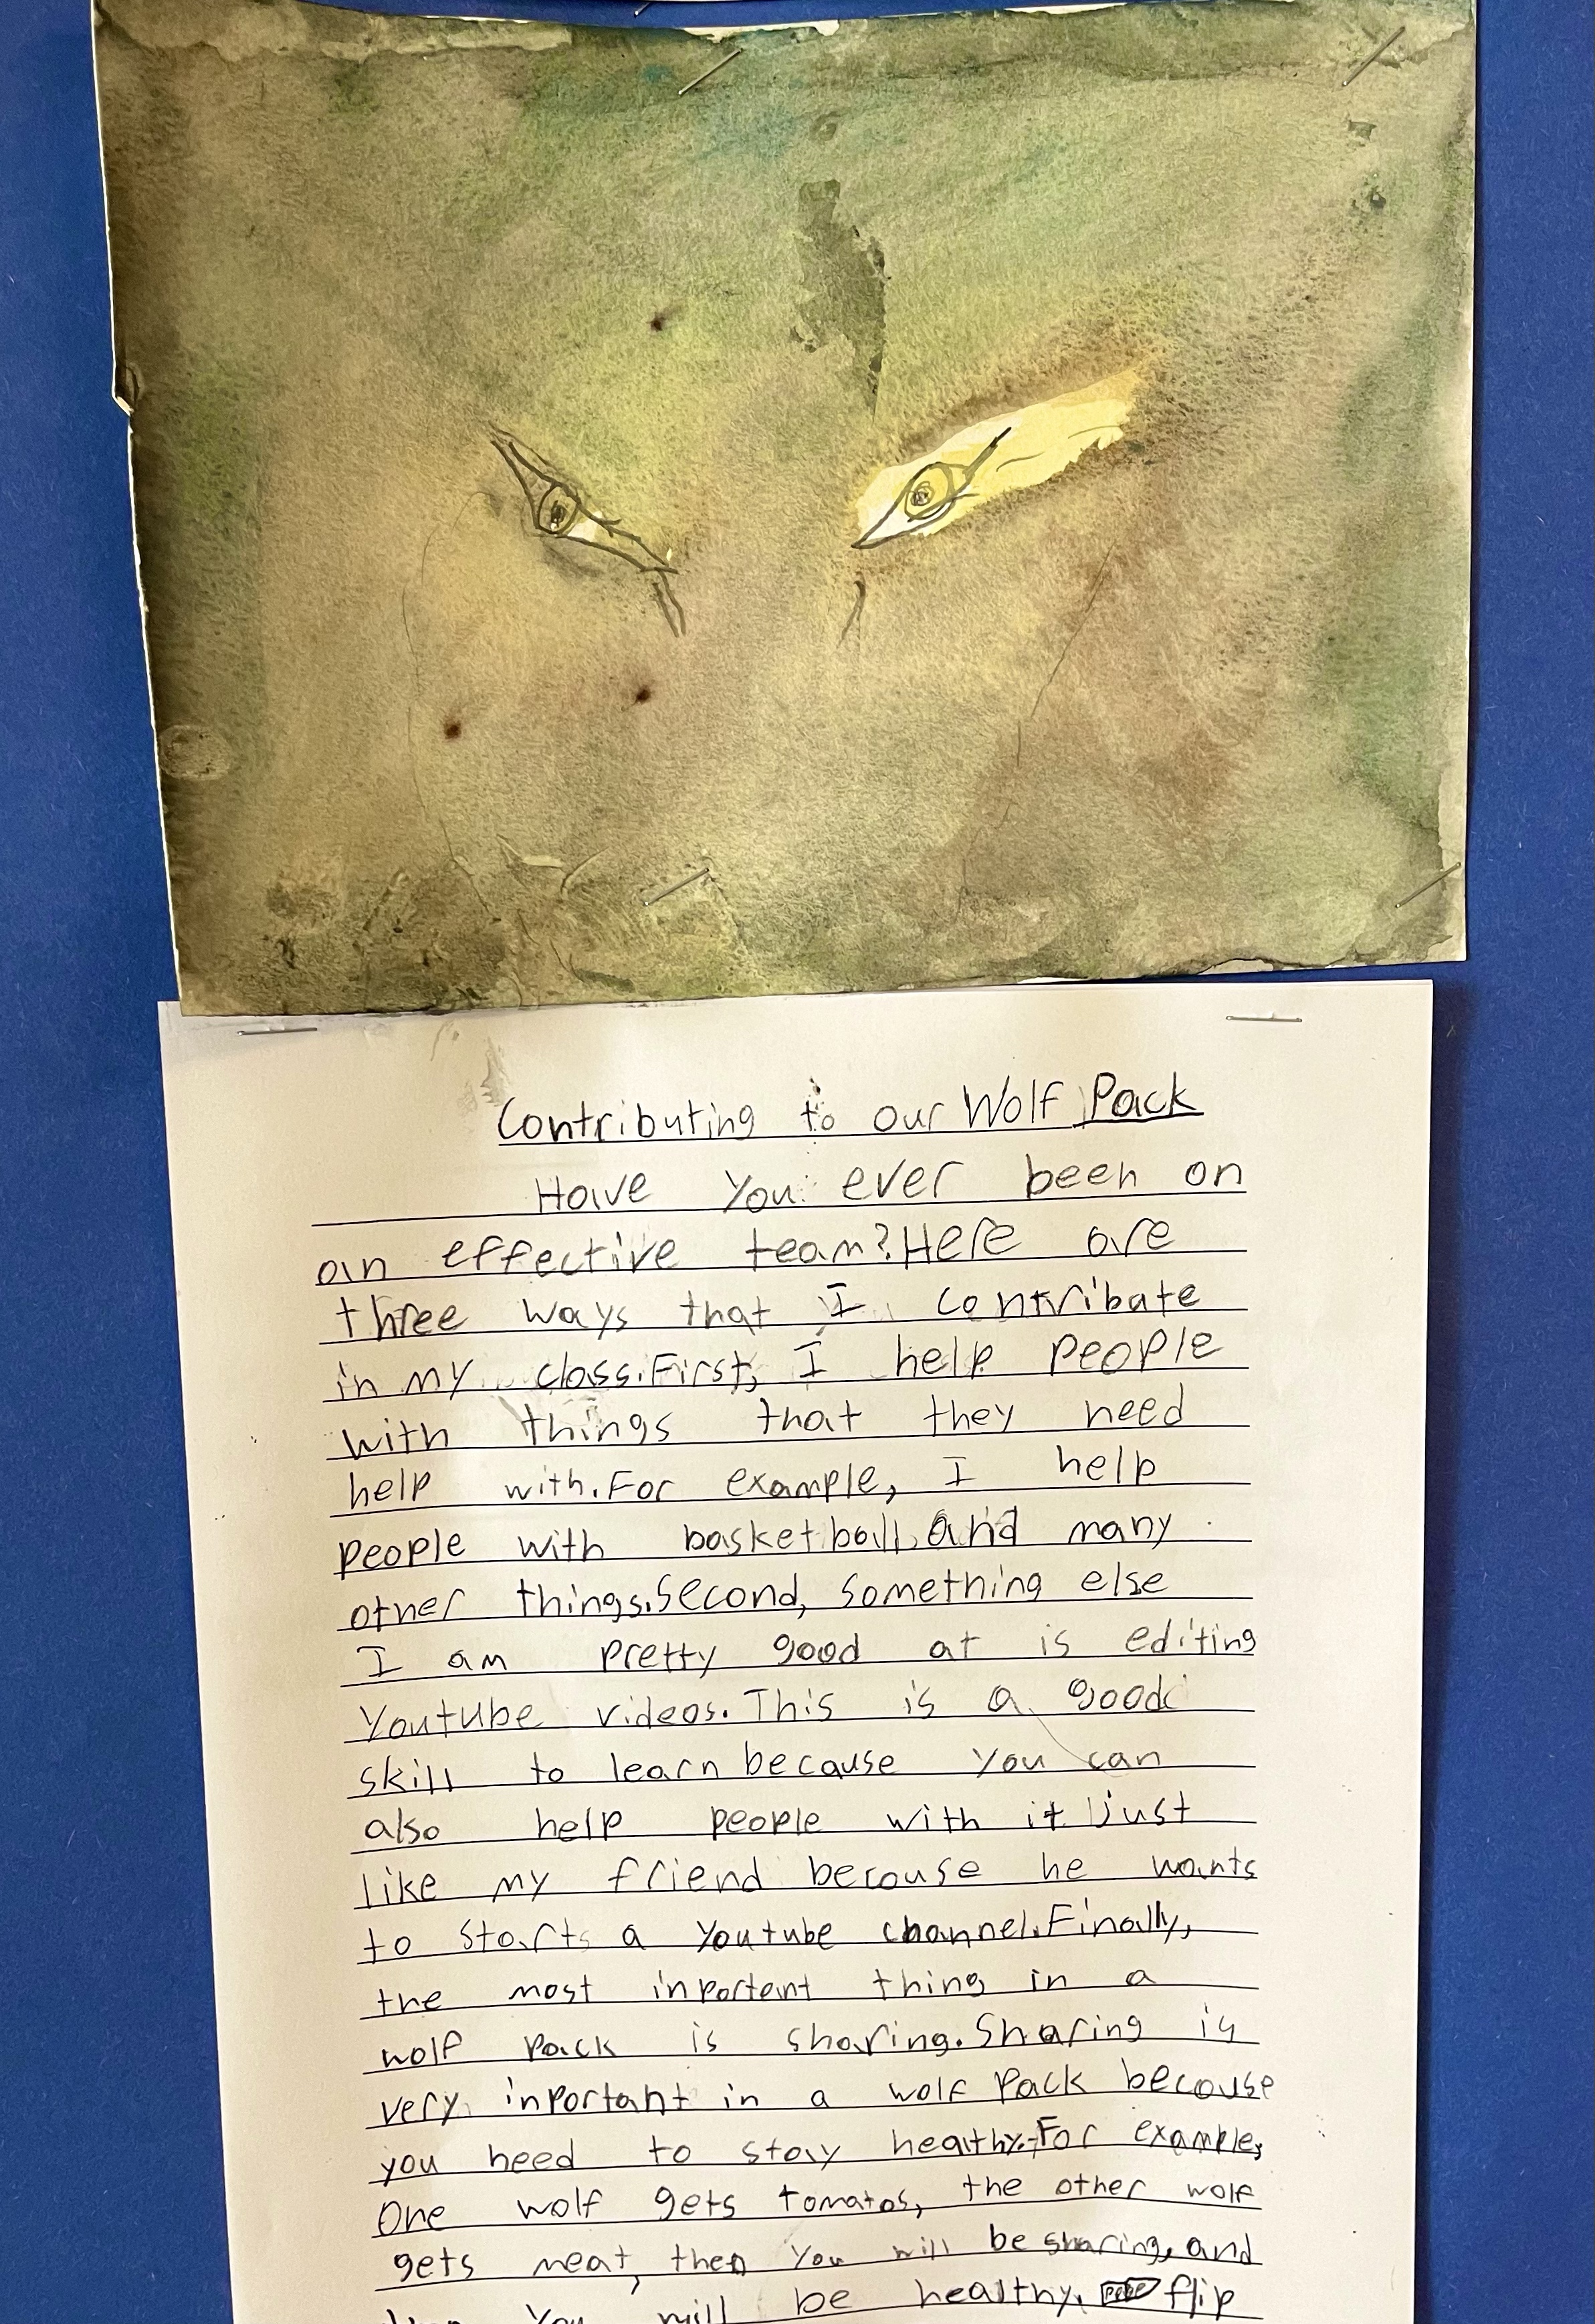 Contributing to our Wolf Pack
Have you ever been on
an effective team? Here are
three ways that I contribate
in my class. First, I help people
with things that they need
help with. For example, I help
people with basketball, and many
other things. Second, something else
I am pretty good at is editing
Youtube videos. This is a good
skill to learn because you can
also help people with it Just
like my friend becouse he wants
to starts a Youtube channel. Finally,
the most inportent thing in a
wolf pack is sharing. Sharing is
very inportant in a wolf pack becouse
you need to stay healthy. For example,
One wolf gets tomatos, the other wolf
gets meat, then you will be sharing, and
you will be healthy. flip